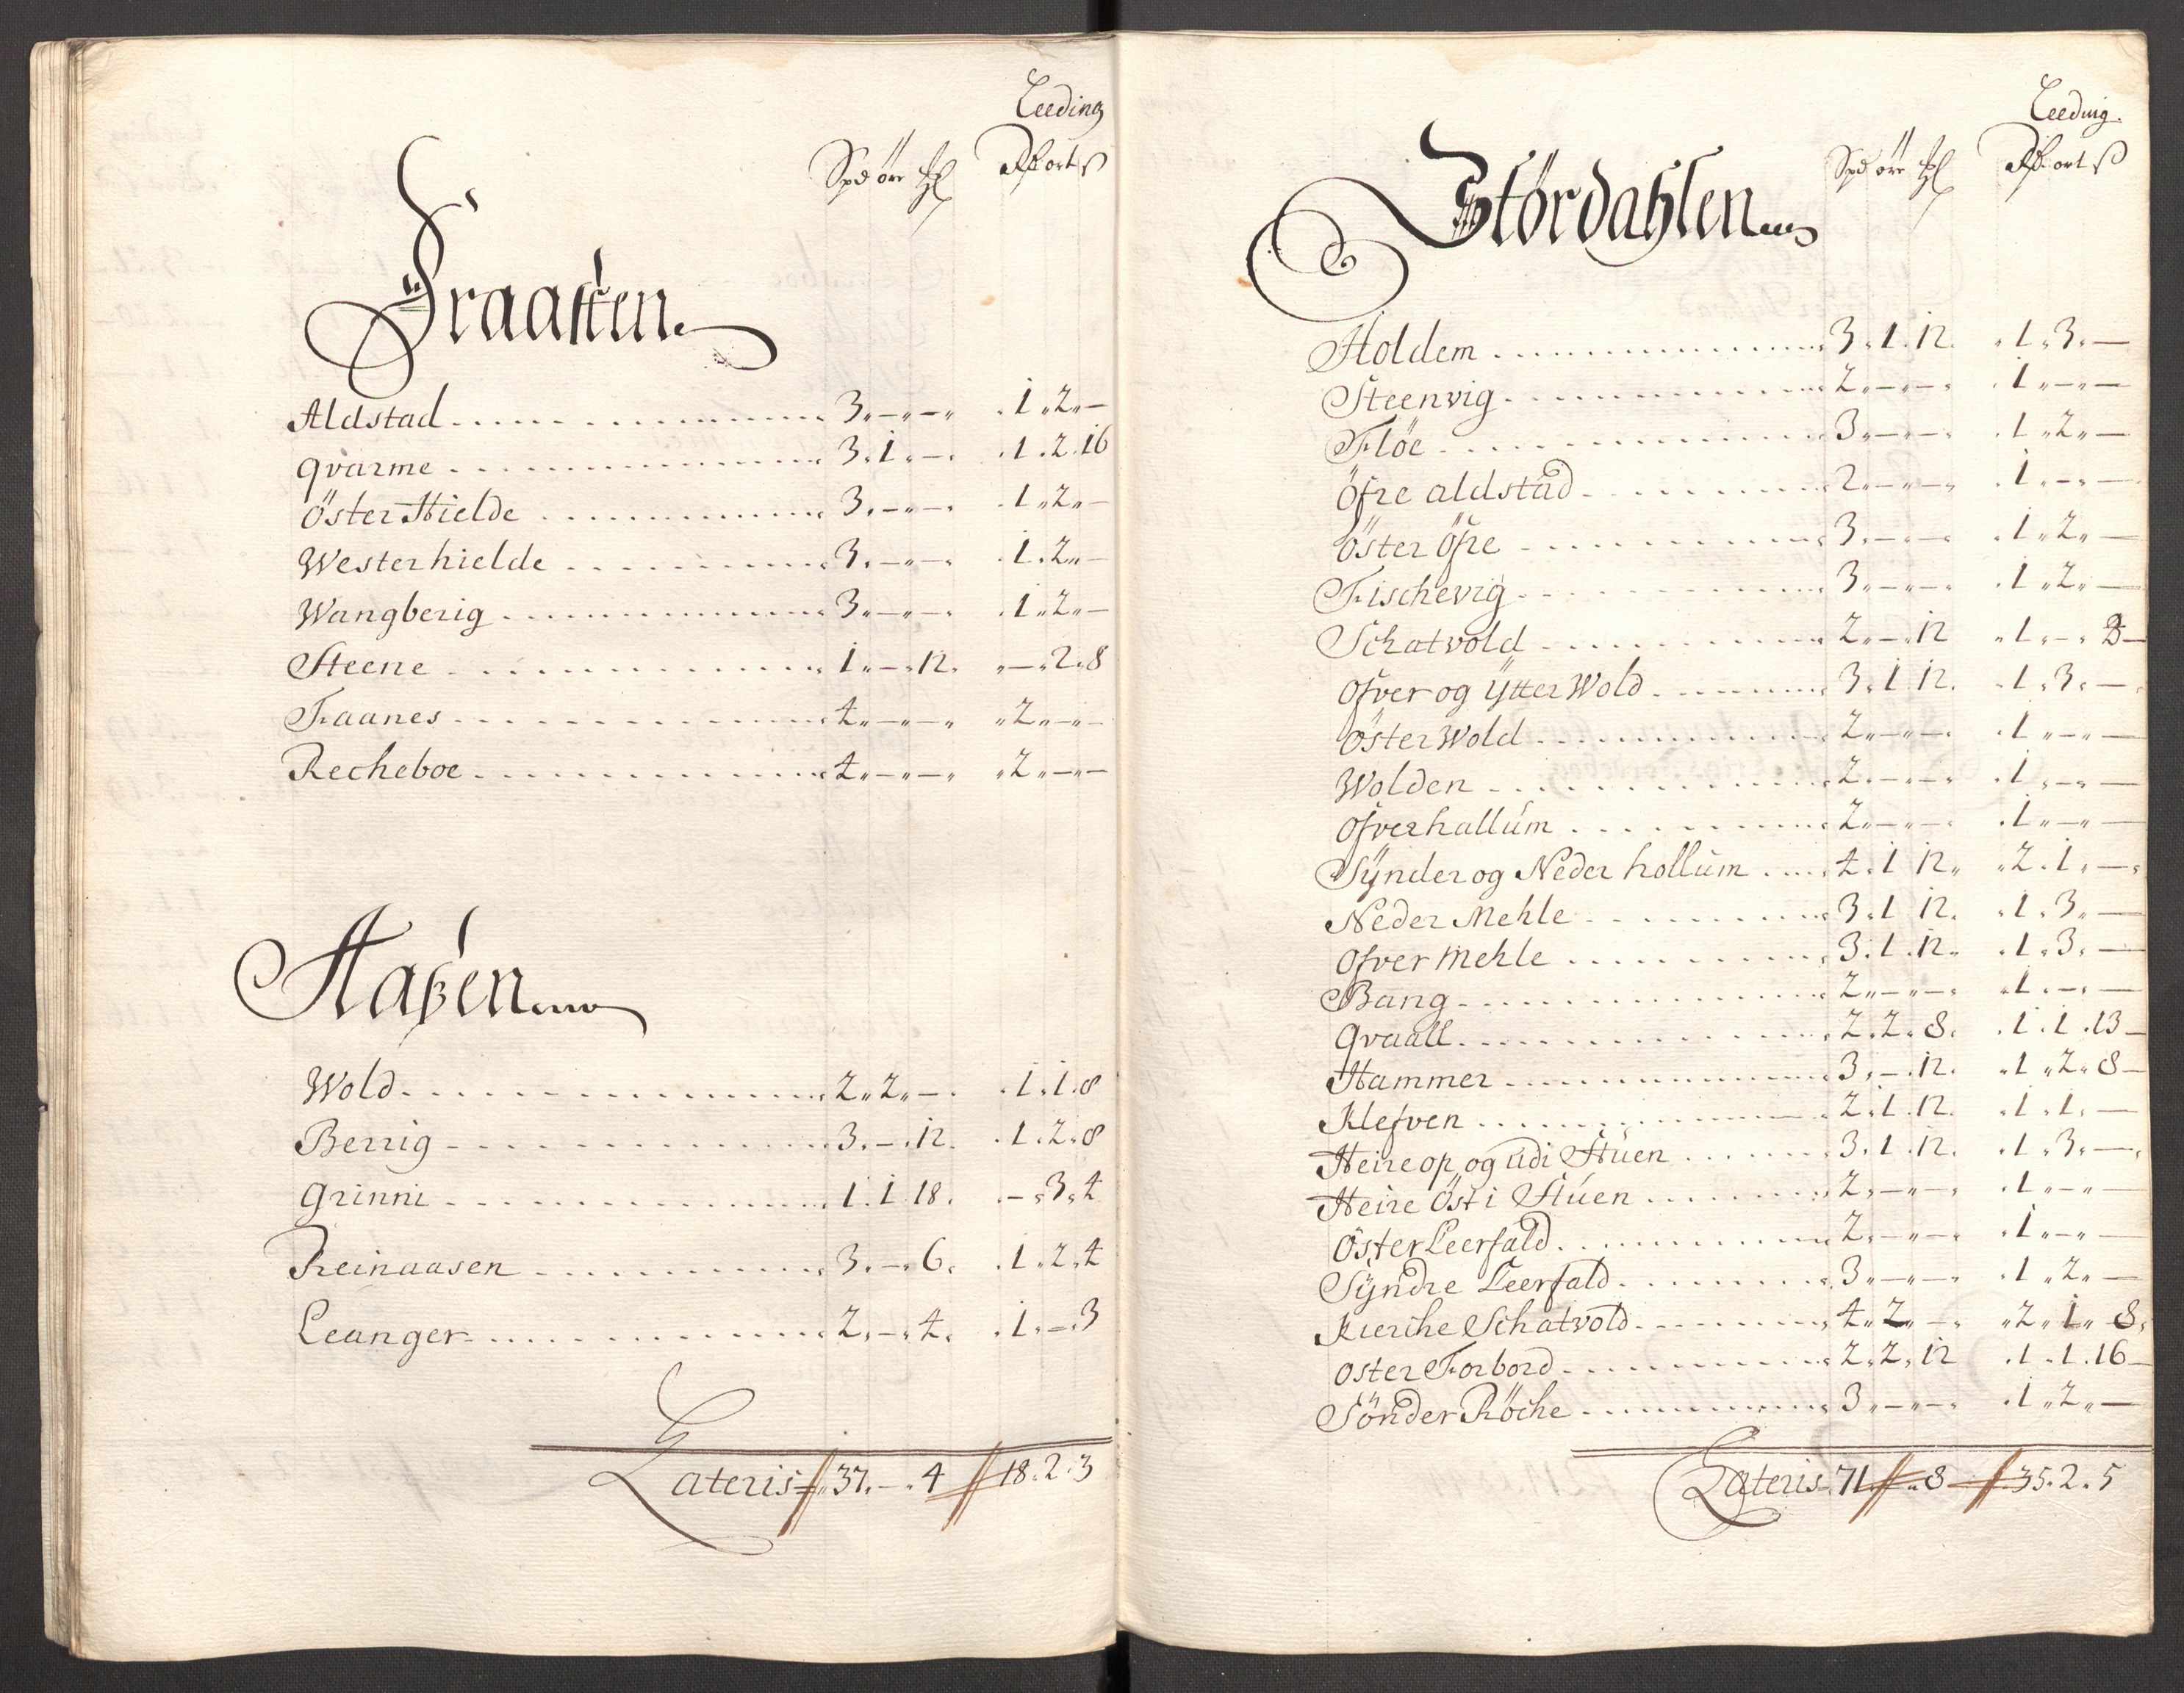 Leeding
Spd ör ℔ Rß ort ß
Fraasten.
Aldstad 3 " — " — " 1 " 2 " —
Qvarme 3 . 1 . — . 1 . 2 . 16
Öster Hielde 3 . — " — . 1 " 2 " —
Westerhielde 3 . — " — . 1 . 2 " —
Wangberig 3 " — " — . 1 " 2 " —
Steene 1 " — . 12 . " — . 2 . 8
Faanes 4 " — " — " " 2 " — " —
Recheboe 4 " — " — " " 2 " — " —
Haßen
Wold 2 " 2 " — . 1 . 1 . 8
Berrig 3 . — . 12 . 1 . 2 . 8
Grinni 1 . 1 18 . — . 3 . 4
Reinaasen 3 . — . 6 . 1 . 2 . 4
Leanger 2 . — . 4 . 1 . — . 3
Lateris 37 . — . 4 18 . 2 . 3
Leeding.
Spd ör ℔ Rß ort ß
Stördahlen
Holdem 3 . 1 . 12 . 1 . 3 . —
Steenvig 2 . — . — . 1 " — " —
Flöe 3 " — " — . 1 " 2 " —
Öfre aldstad 2 " — " — . 1 . — . —
Öster Öfre 3 . — " — . 1 " 2 " —
Fischevig 3 " — " — . 1 " 2 " —
Schatvold 2 . — . 12 . 1 . — . 8 —
Ofver og Ÿtter Wold 3 . 1 12 . 1 . 3 . —
Öster Wold 2 " — " — . 1 " — " —
Wolden 2 . — " — . 1 . — . —
Ofverhallum 2 " — " — . 1 " — " —
Sÿnder og Neder hollum 4 . 1 12 " " 2 . 1 . —
Neder Mehle 3 . 1 12 . 1 . 3 " —
Ofver Mehle 3 . 1 . 12 . 1 . 3 . —
Bang 2 " — " — . 1 . — . —
Qvaall 2 . 2 . 8 . 1 . 1 . 13 —
Hammer 3 . — . 12 . 1 " 2 . 8 —
Klefven 2 . 1 . 12 . 1 . 1 . —
Heire op og udi Stuen 3 . 1 . 12 . 1 . 3 . —
Heire Öst i Stuen 2 . — " — . 1 " — " —
Öster Leerfald 2 . — " — . 1 " — " —
Sÿndre Leerfald 3 " — " — . 1 " 2 " —
Kierche Schatvold 4 " 2 " — " 2 . 1 . 8
Oster Forbord 2 . 2 . 12 . 1 . 1 . 16 —
Sönder Röche 3 " — " — . 1 " 2 " —
Lateris 71 . " . 8 35 . 2 . 5